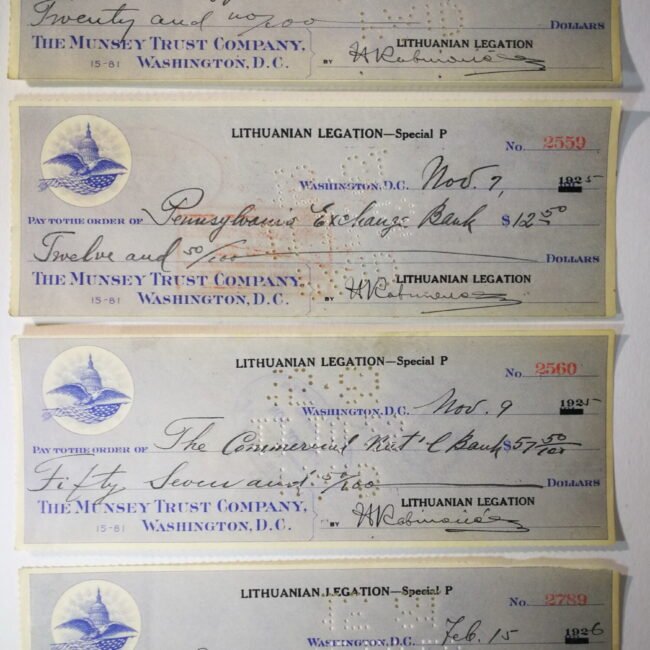 Twenty and no/100 DOLLARS
THE MUNSEY TRUST COMPANY,
LITHUANIAN LEGATION
15-81 WASHINGTON, D.C. BY
LITHUANIAN LEGATION—Special P
No. 2559
WASHINGTON, D.C. Nov. 7, 1925
PAY TO THE ORDER OF Pennsylvania Exchange Bank $12 50
Twelve and 50/100 DOLLARS
THE MUNSEY TRUST COMPANY,
LITHUANIAN LEGATION
15-81 WASHINGTON, D.C. BY
LITHUANIAN LEGATION—Special P
No. 2560
WASHINGTON, D.C. Nov. 9 1925
PAY TO THE ORDER OF The Commercial Nat'l Bank $57 50/100
Fifty Seven and 50/100 DOLLARS
THE MUNSEY TRUST COMPANY,
LITHUANIAN LEGATION
15-81 WASHINGTON, D.C. BY
LITHUANIAN LEGATION—Special P
No. 2789
WASHINGTON, D.C. Feb. 15 1926